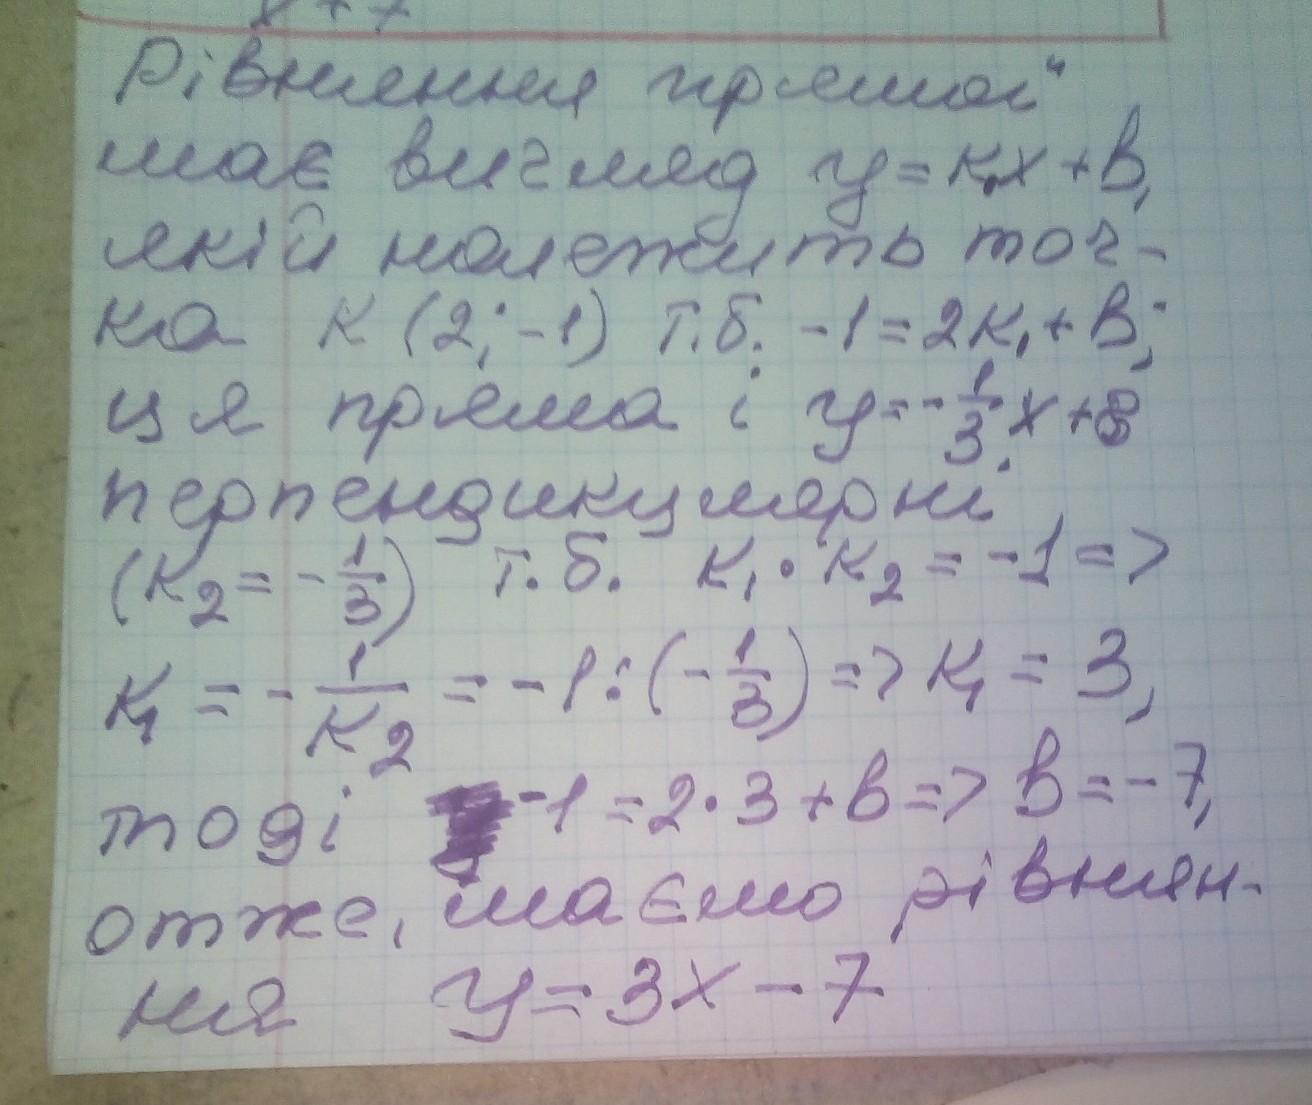 Рівняння прямої
має вигляд y=k₁x+b,
якій належить точ-
ка K(2;-1) т.б. -1=2k₁+b;
ця пряма і y=-1/3x+8
перпендикулярні
(k₂=-1/3) т.б. k₁·k₂=-1=>
k₁=-1/k₂=-1:(-1/3)=>k₁=3,
тоді -1=2·3+b=>b=-7,
отже, маємо рівнян-
ня y=3x-7